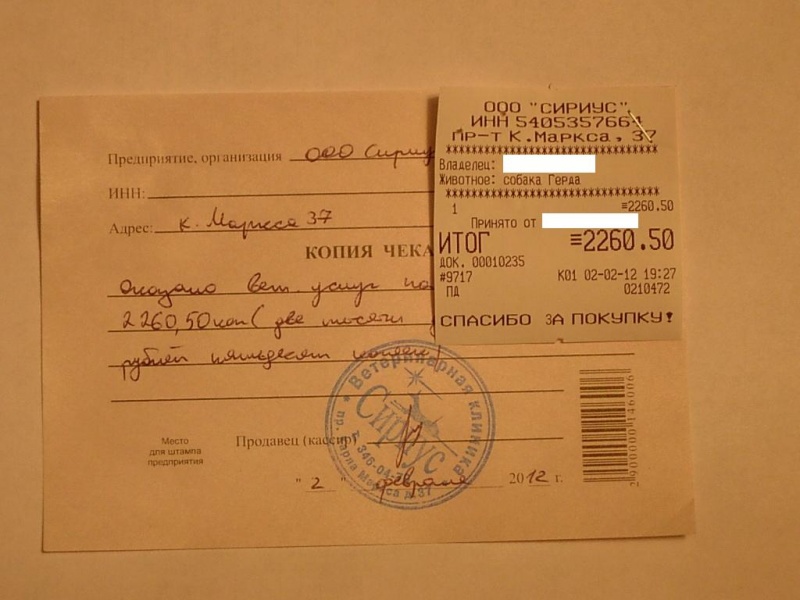 ООО "СИРИУС"
ИНН 5405357664
пр-т К.Маркса, 37
************************************
Владелец:
Животное: собака Герда
************************************
1 ≡2260.50
Принято от
ИТОГ ≡2260.50
ДОК. 00010235
#9717 К01 02-02-12 19:27
ПД 0210472
СПАСИБО ЗА ПОКУПКУ!
Предприятие, организация ООО Сириу
ИНН:
Адрес: К. Маркса 37
КОПИЯ ЧЕКА
Оказано вет. услуг на
2260,50 коп (две тысячи
рублей пятьдесят копеек)
Ветеринарная клиника
Сириус
т. 346-04-
пр. Карла Маркса д.37
Место
для штампа
предприятия
Продавец (кассир)
" 2 " февраля 2012 г.
2900000146006